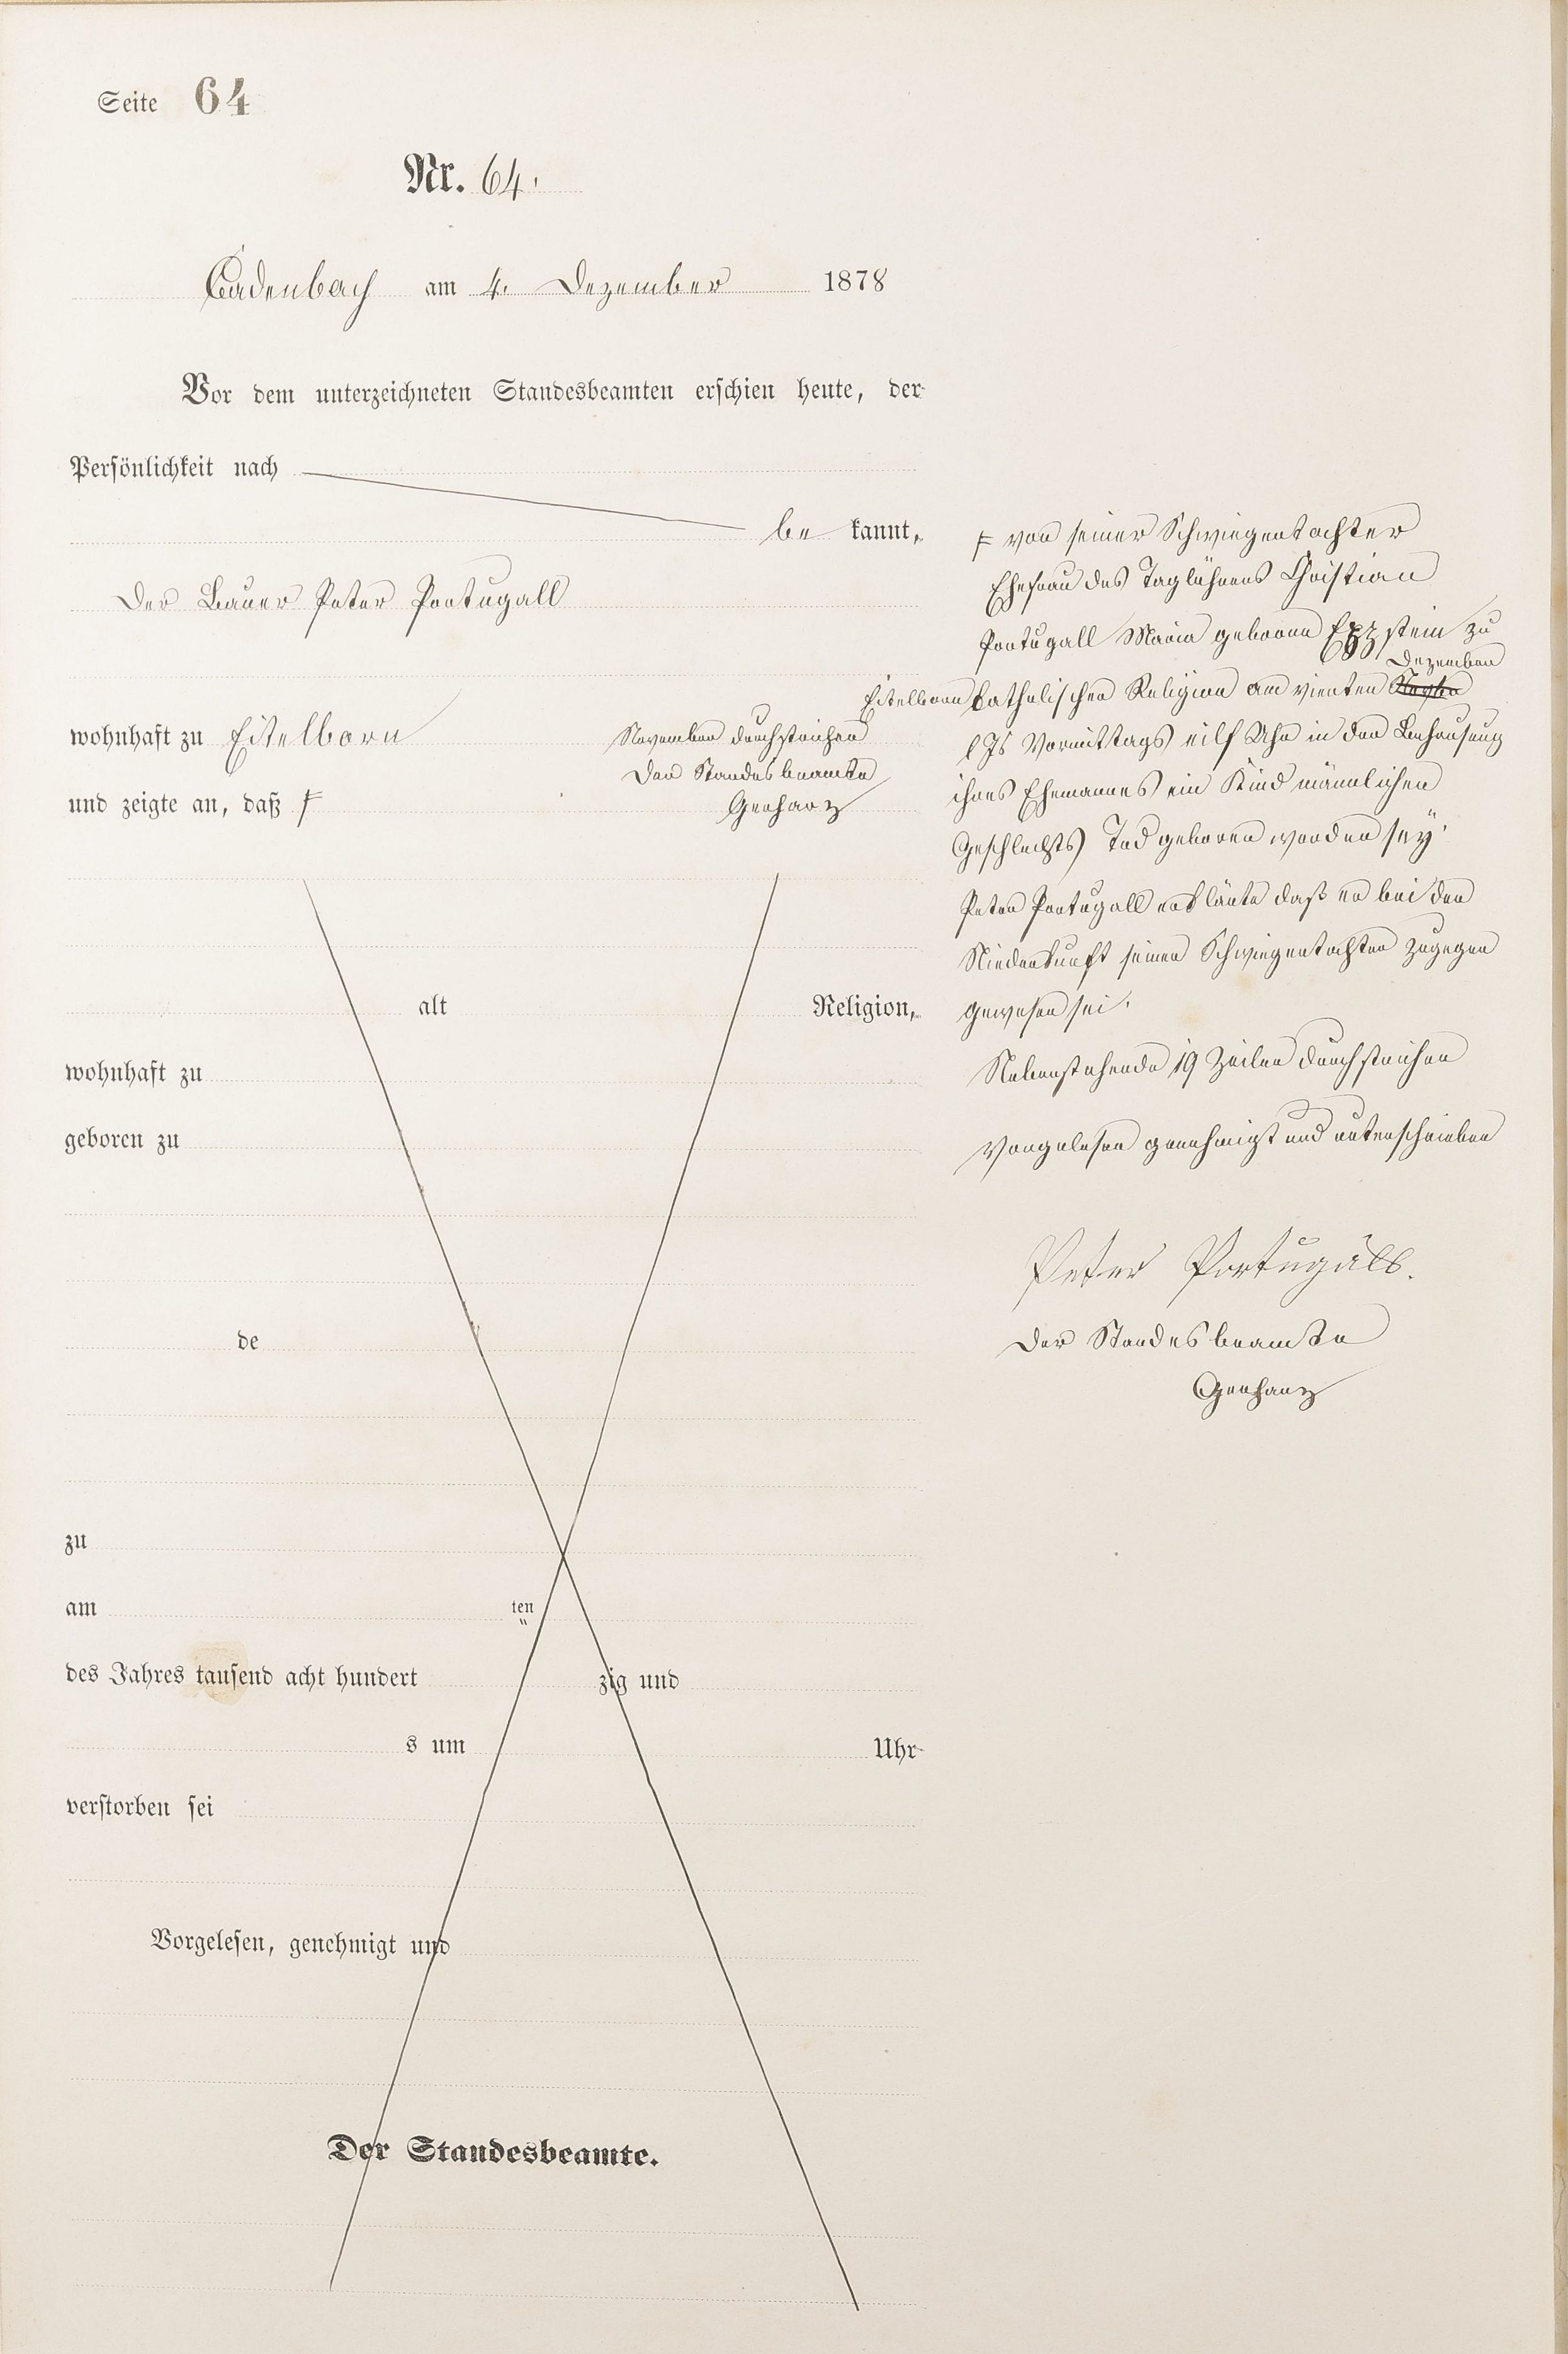 Seite 64
Nr. 64.
Cadenbach am 4. Dezember 1878
Vor dem unterzeichneten Standesbeamten erschien heute, der
Persönlichkeit nach
be kannt,
Der Bauer Peter Portugall
wohnhaft zu Eitelborn
und zeigte an, daß F
November durchstrichen
Der Standesbeamte
Gerharz
alt Religion,
wohnhaft zu
geboren zu
de
zu
am ten
des Jahres tausend acht hundert zig und
s um Uhr
verstorben sei
Vorgelesen, genehmigt und
Der Standesbeamte.
F von seiner Schwiegertochter
Ehefrau des Taglöhners Christian
Portugall Maria geborne Eppstein zu
Dezember
Eitelborn katholischer Religion am vierten
l Js Vormittags eilf Uhr in der Behausung
ihres Ehemannes ein Kind männlichen
Geschlechts Tod geboren worden sey.
Peter Portugall erklärte daß er bei der
Niederkunft seiner Schwiegertochter zugegen
gewesen sei.
Nebenstehende 19 Zeilen durchstrichen
Vorgelesen genehmigt und unterschrieben
Peter Portugall.
Der Standesbeamte
Gerharz